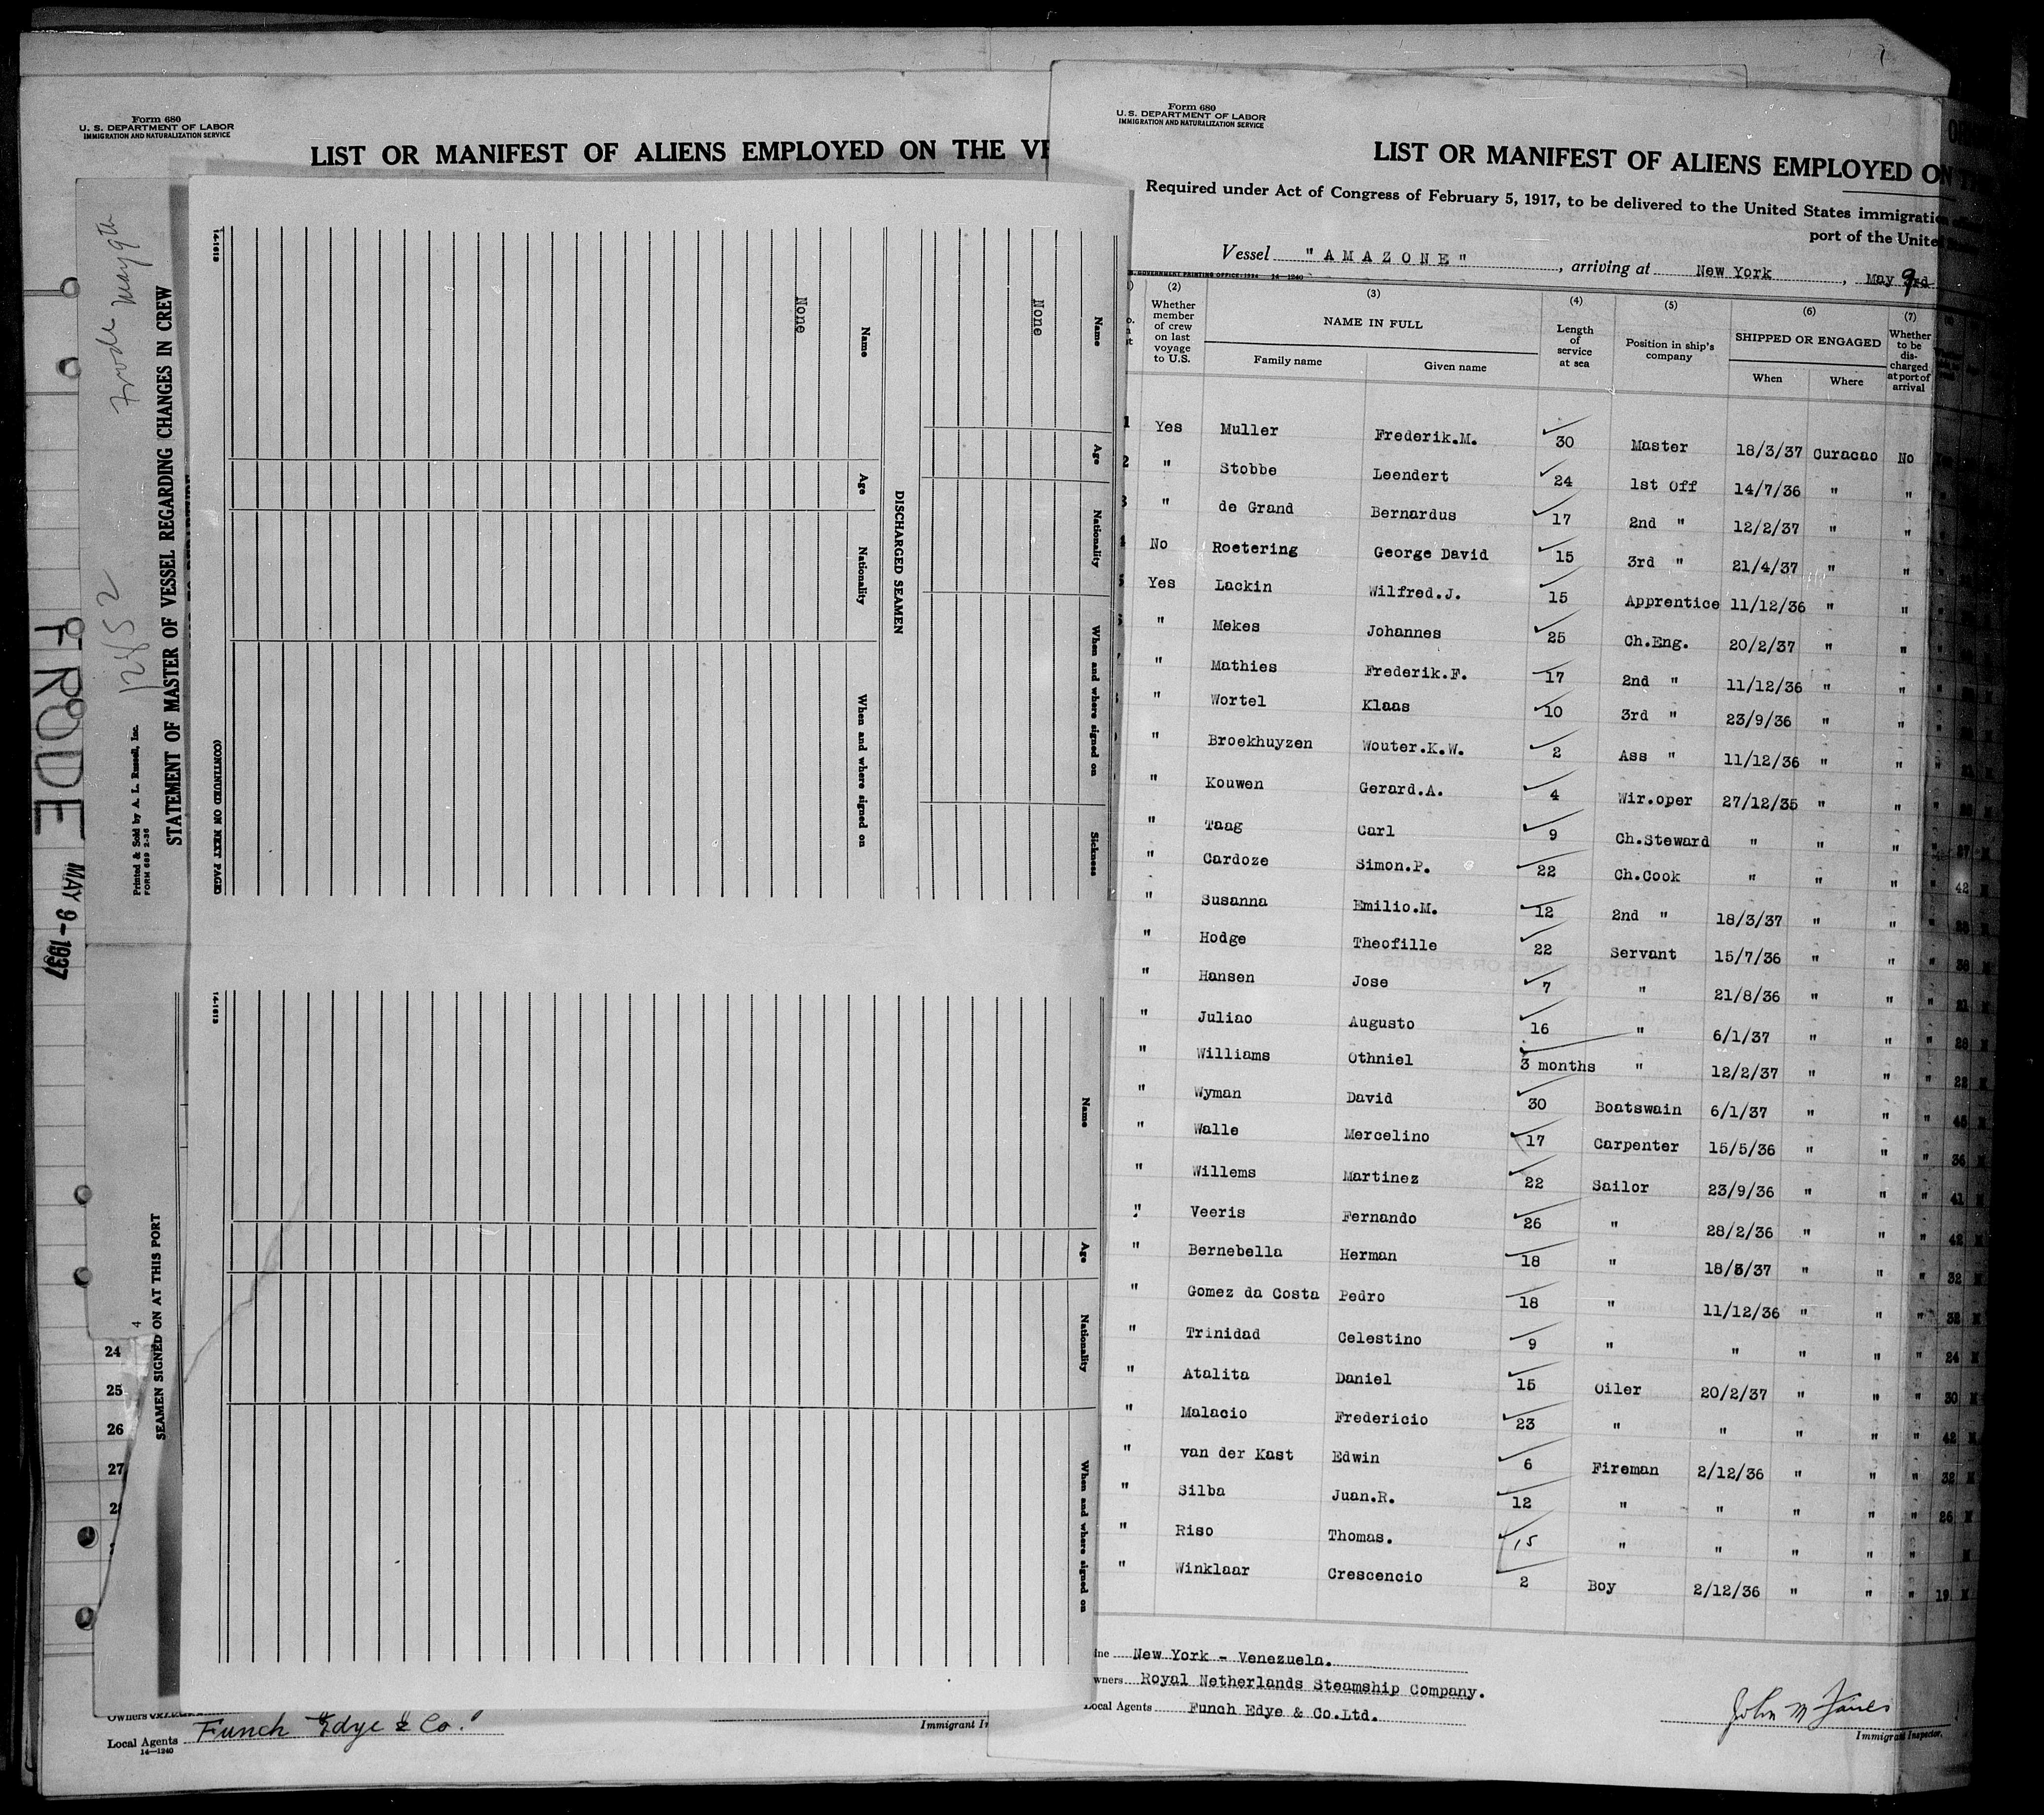 Form 680
U. S. DEPARTMENT OF LABOR
IMMIGRATION AND NATURALIZATION SERVICE
LIST OR MANIFEST OF ALIENS EMPLOYED ON THE VE
Frode May 9th
1252
FRODE MAY 9-1937
Printed & Sold by A. L. Russell, Inc.
FORM 689 2-36
STATEMENT OF MASTER OF VESSEL REGARDING CHANGES IN CREW
SEAMEN SIGNED ON AT THIS PORT
4
24
25
26
27
Name Age Nationality When and where signed on Sickness
None
DISCHARGED SEAMEN
Name Age Nationality When and where signed on
None
(CONTINUED ON NEXT PAGE)
14-1618
Name Age Nationality When and where signed on
14-1618
Owners
Local Agents Funch Edye & Co.
14-1240
Immigrant In
Form 680
U. S. DEPARTMENT OF LABOR
IMMIGRATION AND NATURALIZATION SERVICE
LIST OR MANIFEST OF ALIENS EMPLOYED ON
Required under Act of Congress of February 5, 1917, to be delivered to the United States immigration
port of the United
Vessel "AMAZONE", arriving at New York, May 9 3rd
GOVERNMENT PRINTING OFFICE: 1934 14-1240
(2) (3) (4) (5) (6) (7)
Whether member of crew on last voyage to U.S.
NAME IN FULL
Family name Given name
Length of service at sea
Position in ship's company
SHIPPED OR ENGAGED
When Where
Whether to be discharged at port of arrival
1 Yes Muller Frederik.M. 30 Master 18/3/37 Curacao No
2 " Stobbe Leendert 24 1st Off 14/7/36 " "
3 " de Grand Bernardus 17 2nd " 12/2/37 " "
4 No Roetering George David 15 3rd " 21/4/37 " "
5 Yes Lackin Wilfred.J. 15 Apprentice 11/12/36 " "
" Mekes Johannes 25 Ch.Eng. 20/2/37 " "
" Mathies Frederik.F. 17 2nd " 11/12/36 " "
" Wortel Klaas 10 3rd " 23/9/36 " "
" Broekhuyzen Wouter.K.W. 2 Ass " 11/12/36 " "
" Kouwen Gerard.A. 4 Wir.oper 27/12/35 " "
" Taag Carl 9 Ch.Steward " " " " 37
" Cardoze Simon.P. 22 Ch.Cook " " " " 42
" Susanna Emilio.M. 12 2nd " 18/3/37 " " "
" Hodge Theofille 22 Servant 15/7/36 " " "
" Hansen Jose 7 " 21/8/36 " " " 21
" Juliao Augusto 16 " 6/1/37 " " " 28
" Williams Othniel 3 months " 12/2/37 " " " 22
" Wyman David 30 Boatswain 6/1/37 " " " 45
" Walle Mercelino 17 Carpenter 15/5/36 " " " 36
" Willems Martinez 22 Sailor 23/9/36 " " " 41
" Veeris Fernando 26 " 28/2/36 " " " 42
" Bernebella Herman 18 " 18/3/37 " " " 32
" Gomez da Costa Pedro 18 " 11/12/36 " " " 32
" Trinidad Celestino 9 " " " " " 24
" Atalita Daniel 15 Oiler 20/2/37 " " " 30
" Malacio Fredericio 23 " " " " " 42
" van der Kast Edwin 6 Fireman 2/12/36 " " " 32
" Silba Juan.R. 12 " " " " " 26
" Riso Thomas. 15 " " " " "
" Winklaar Crescencio 2 Boy 2/12/36 " " " 19
ine New York - Venezuela.
wners Royal Netherlands Steamship Company.
Local Agents Funch Edye & Co.Ltd.
Immigrant Inspector.